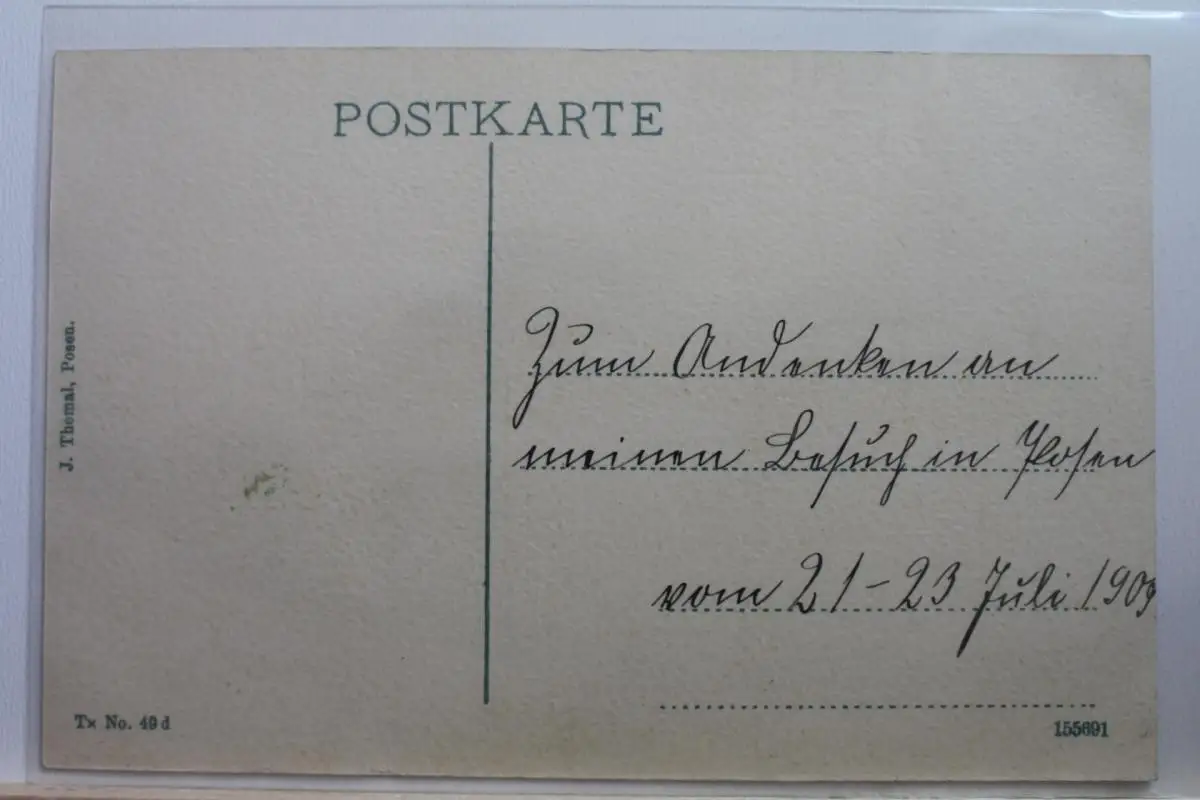 POSTKARTE
J. Themal, Posen.
Zum Andenken an
meinen Besuch in Posen
vom 21-23 Juli 1909
Tx No. 49d
155691